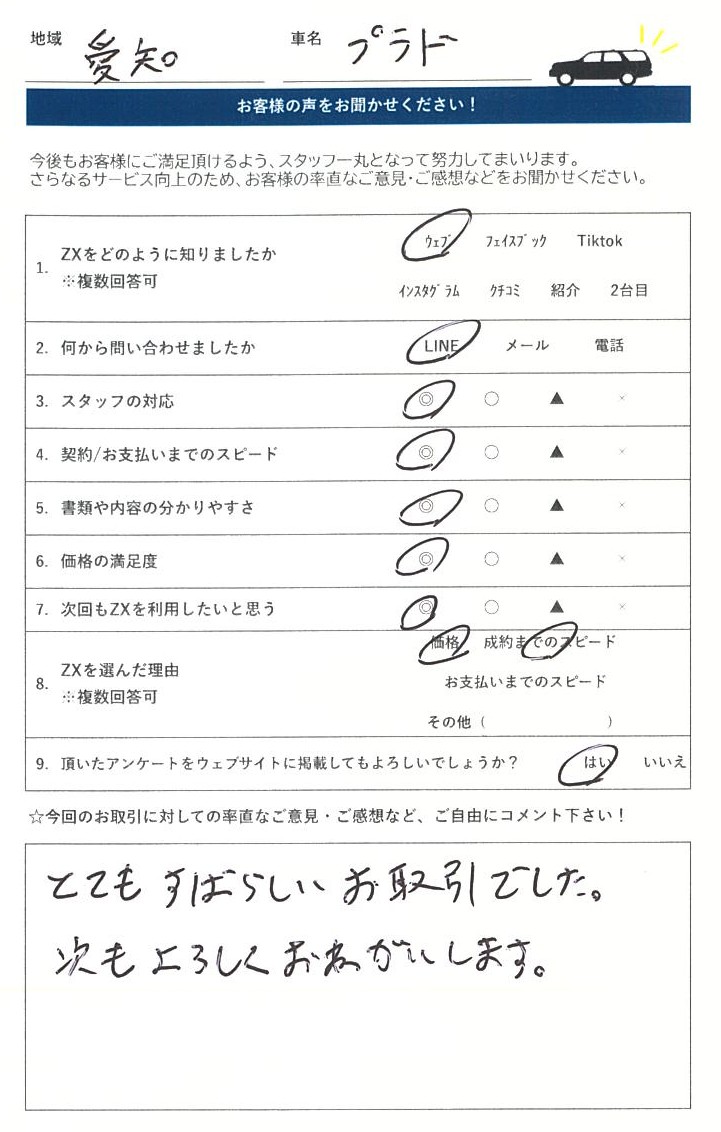 地域 愛知。 車名 プラド
お客様の声をお聞かせください！
今後もお客様にご満足頂けるよう、スタッフ一丸となって努力してまいります。
さらなるサービス向上のため、お客様の率直なご意見・ご感想などをお聞かせください。
1. ZXをどのように知りましたか
※複数回答可
ｳｪﾌﾞ ﾌｪｲｽﾌﾞｯｸ Tiktok
ｲﾝｽﾀｸﾞﾗﾑ ｸﾁｺﾐ 紹介 2台目
2. 何から問い合わせましたか LINE メール 電話
3. スタッフの対応 ◎ ○ ▲ ×
4. 契約/お支払いまでのスピード ◎ ○ ▲ ×
5. 書類や内容の分かりやすさ ◎ ○ ▲ ×
6. 価格の満足度 ◎ ○ ▲ ×
7. 次回もZXを利用したいと思う ◎ ○ ▲ ×
8. ZXを選んだ理由
※複数回答可
価格 成約までのスピード
お支払いまでのスピード
その他（ ）
9. 頂いたアンケートをウェブサイトに掲載してもよろしいでしょうか？ はい いいえ
☆今回のお取引に対しての率直なご意見・ご感想など、ご自由にコメント下さい！
とてもすばらしいお取引でした。
次もよろしくおねがいします。